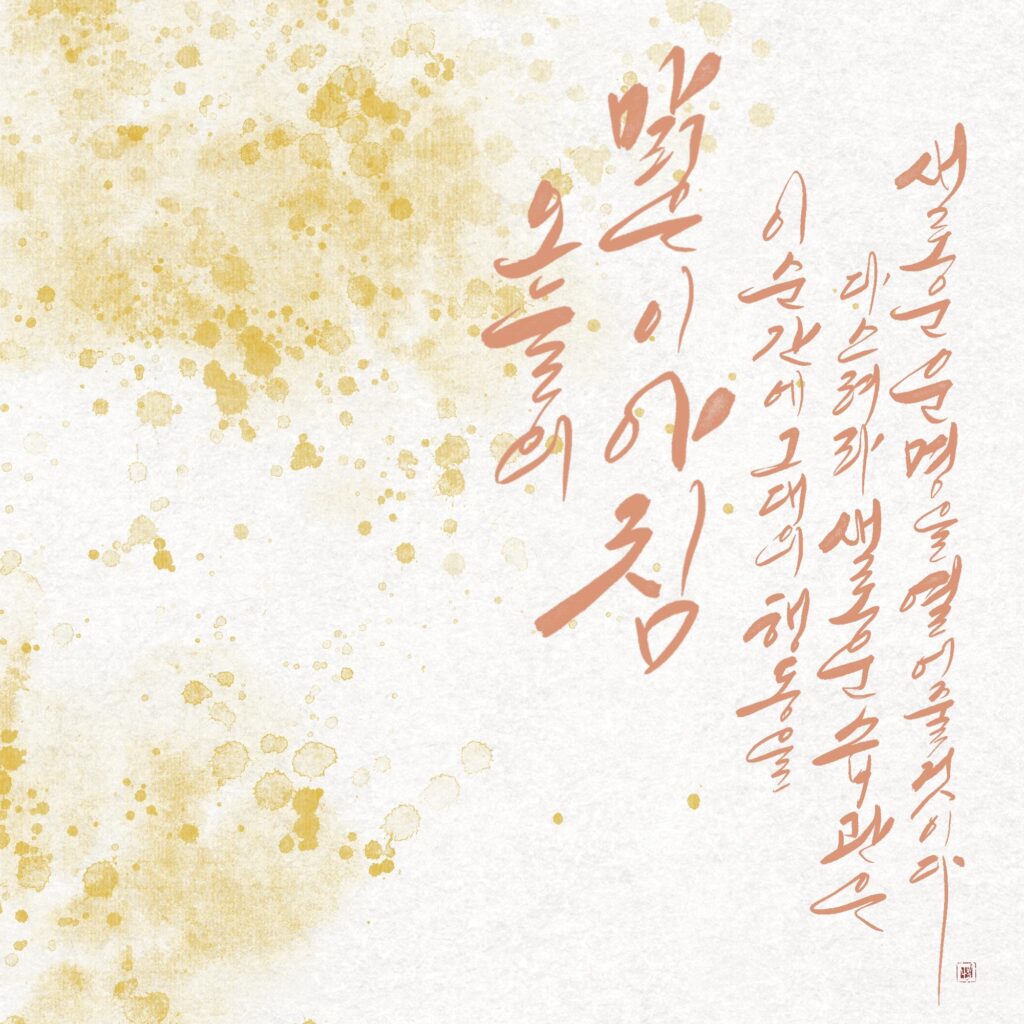 오늘의
맑은 이 아침
이 순간에 그대의 행동을
다스려라 새로운 습관은
새로운 운명을 열어줄 것이다